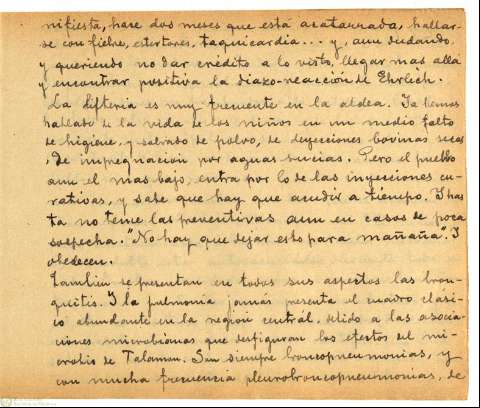 nifiesta, hase dos meses que está acatarrada, hallar-
se con fiebre, estertores, taquicardia... y, aun dudando
y queriendo no dar crédito a lo visto, llegar mas allá
y encontrar positiva la diazo-reacción de Ehrlich.
La difteria es muy frecuente en la aldea. Ya hemos
hablado de la vida de los niños en un medio falto
de higiene, y sobrado de polvo, de deyecciones bovinas secas
, de impregnacion por aguas sucias. Pero el pueblo
aun el mas bajo, entra por lo de las inyecciones cu-
rativas, y sabe que hay que acudir a tiempo. Y has
ta no teme las preventivas aun en casos de poca
sospecha. "No hay que dejar esto para mañana". Y
obedecen.
Tambien se presentan en todos sus aspectos las bron-
quitis. Y la pulmonia jamás presenta el cuadro clási-
co abundante en la region central, debido a las asocia-
ciones microbianas que desfiguran los efectos del mi-
crobio de Talamon. Son siempre broncopneumonias, y
con mucha frecuencia pleurobroncopneumonias, de